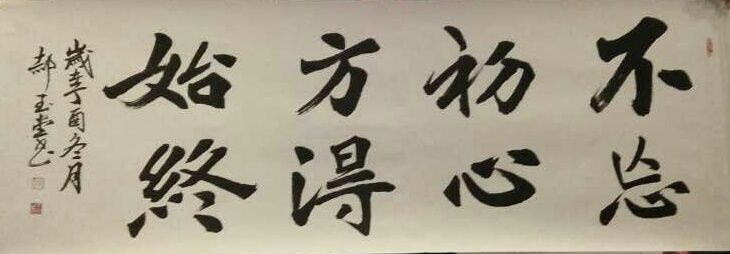 不忘
初心
方得
始終
歲在丁酉冬月
郝玉堂书